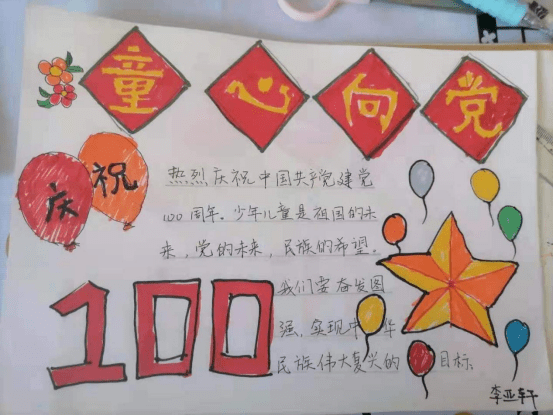 童心向党
庆祝
热烈庆祝中国共产党建党
100周年。少年儿童是祖国的未
来，党的未来，民族的希望。
100
我们要奋发图
强，实现中华
民族伟大复兴的目标。
李亚轩